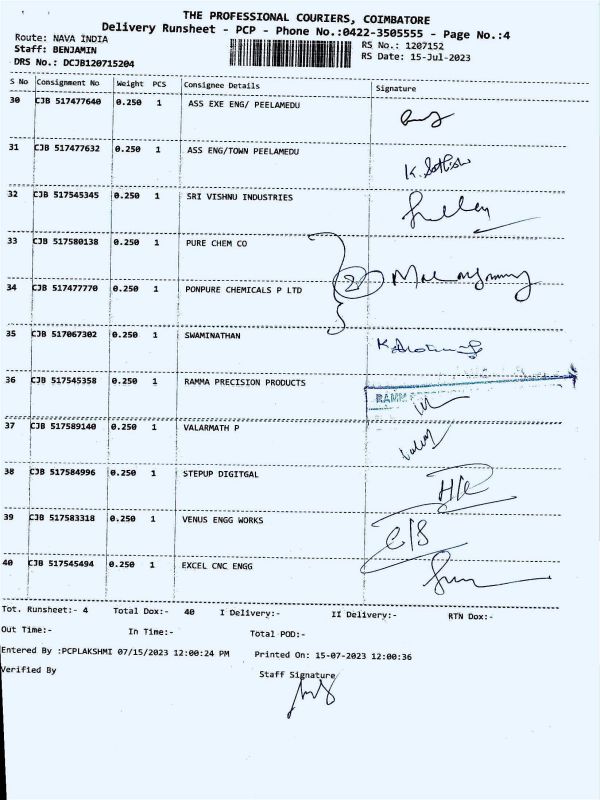 THE PROFESSIONAL COURIERS, COIMBATORE
Delivery Runsheet - PCP - Phone No.:0422-3505555 - Page No.:4
Route: NAVA INDIA RS No.: 1207152
Staff: BENJAMIN RS Date: 15-Jul-2023
DRS No.: DCJB120715204
S No Consignment No Weight PCS Consignee Details Signature
30 CJB 517477640 0.250 1 ASS EXE ENG/ PEELAMEDU
31 CJB 517477632 0.250 1 ASS ENG/TOWN PEELAMEDU
K. Sathish
32 CJB 517545345 0.250 1 SRI VISHNU INDUSTRIES
33 CJB 517580138 0.250 1 PURE CHEM CO
2
34 CJB 517477770 0.250 1 PONPURE CHEMICALS P LTD
35 CJB 517067302 0.250 1 SWAMINATHAN
36 CJB 517545358 0.250 1 RAMMA PRECISION PRODUCTS
37 CJB 517589140 0.250 1 VALARMATH P
38 CJB 517584996 0.250 1 STEPUP DIGITGAL
39 CJB 517583318 0.250 1 VENUS ENGG WORKS
40 CJB 517545494 0.250 1 EXCEL CNC ENGG
Tot. Runsheet:- 4 Total Dox:- 40 I Delivery:- II Delivery:- RTN Dox:-
Out Time:- In Time:- Total POD:-
Entered By :PCPLAKSHMI 07/15/2023 12:00:24 PM Printed On: 15-07-2023 12:00:36
Verified By Staff Signature